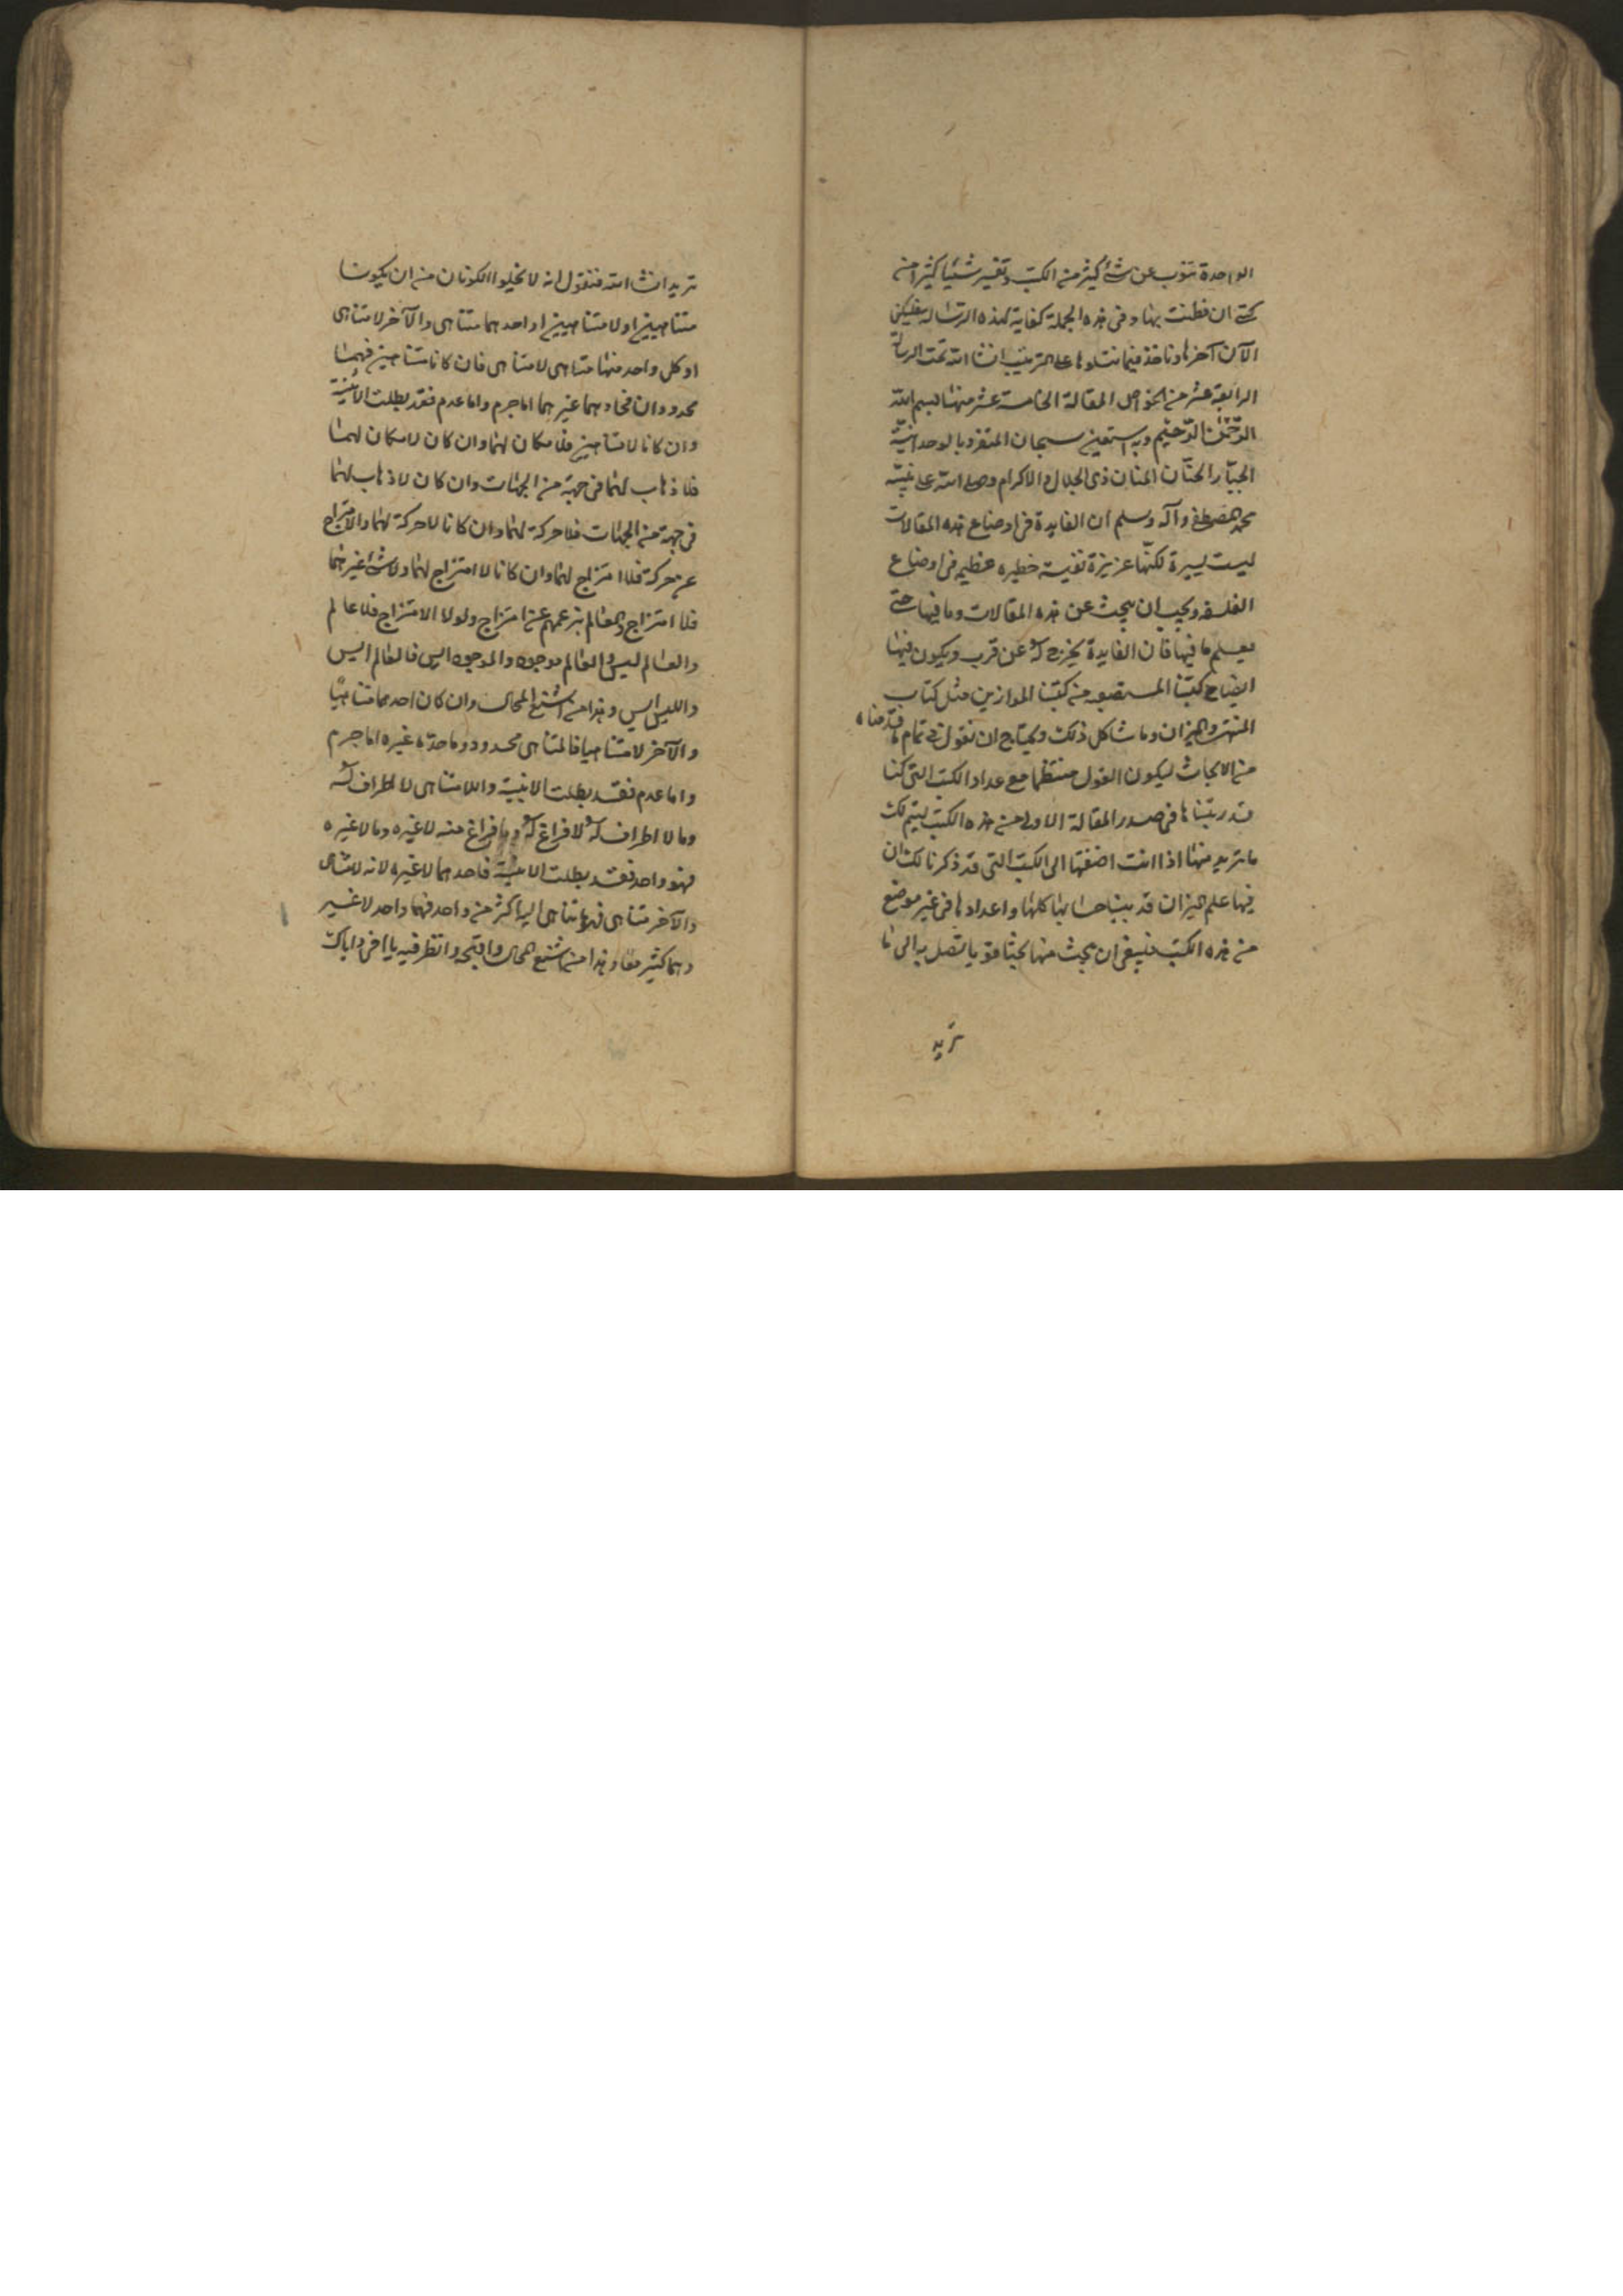 الواحدة تنوب عن شئ كثير من الكتب وتفسر شيئا كثيرا من
كتبى ان فطنت بها وفى هذه الجملة كفاية لهذه الرسالة فليكن
الآن آخرها وناخذ فيما نتلوها على الترتيب انشا الله تمت الرسالة
الرابعة عشر من الخواص المقالة الخامسة عشر منها بسم الله
الرحمن الرحيم وبه استعين سبحان المتفرد بالوحدانية
الجبار الحنان المنان ذى الجلال والاكرام وصلى الله على نبيه
محمد المصطفى وآله وسلم ان الفايدة فى اوضاع هذه المقالات
ليست يسيرة لكنها عزيزة نفيسة خطيره عظيم فى اوضاع
الفلسفه ويجب ان يبحث عن هذه المقالات وما فيها حتى
يعلم ما فيها فان الفايدة يخرج له عن قرب ويكون فيها
ايضاح كتبنا المستصعبه من كتبنا الموازين مثل كتاب
المنتهى والميزان وما شاكل ذلك ويحتاج ان نقول فى تمام ما قدمناه
من الابحاث ليكون القول منتظما مع عداد الكتب التى كنا
قد رتبناها فى صدر المقالة الاولى من هذه الكتب ليتم لك
ما تريد منها اذا انت اضفتها الى الكتب التى قد ذكرنا لك ان
فيها علم الميزان قد بينا حسابها كلها واعدادها فى غير موضع
من هذه الكتب فينبغى ان يبحث منها بحثا قويا لتصل به الى ما
تريد
تريد انشا الله فنقول انه لا يخلوا الكونان من ان يكونا
متناهيين او لا متناهيين او احدهما متناهى والآخر لا متناهى
او كل واحد منهما متناهى لا متناهى فان كانا متناهيين فهما
محدودان فحادهما غيرهما اما جرم واما عدم فقد بطلت الاثنينية
وان كانا لا متناهيين فلا مكان لهما وان كان لا مكان لهما
فلا ذهاب لهما فى جهة من الجهات وان كان لا ذهاب لهما
فى جهة من الجهات فلا حركة لهما وان كانا لا حركة لهما والامتزاج
عن حركة فلا امتزاج لهما وان كانا لا امتزاج لهما ولا شئ غيرهما
فلا امتزاج والعالم بزعمهم عن امتزاج ولولا الامتزاج فلا عالم
والعالم ليس والعالم موجود والموجود ايس فالعالم ايس
والليس ايس وهذا من اشنع المحال وان كان احدهما متناهيا
والآخر لا متناهيا فالمتناهى محدود وما حده غيره اما جرم
واما عدم فقد بطلت الاثنينية واللامتناهى لا اطراف له
وما لا اطراف له لا فراغ له وما فراغ منه لا غيره وما لا غيره
فهو واحد فقد بطلت الاثنينية فاحدهما لا غيره لانه لامتناهى
والآخر متناهى فهما متناهى اليها اكثر من واحد فهما واحد لا غير
وهما كثير معا وهذا من اشنع المحال واقبحه وانظر فيه يا اخى واياك